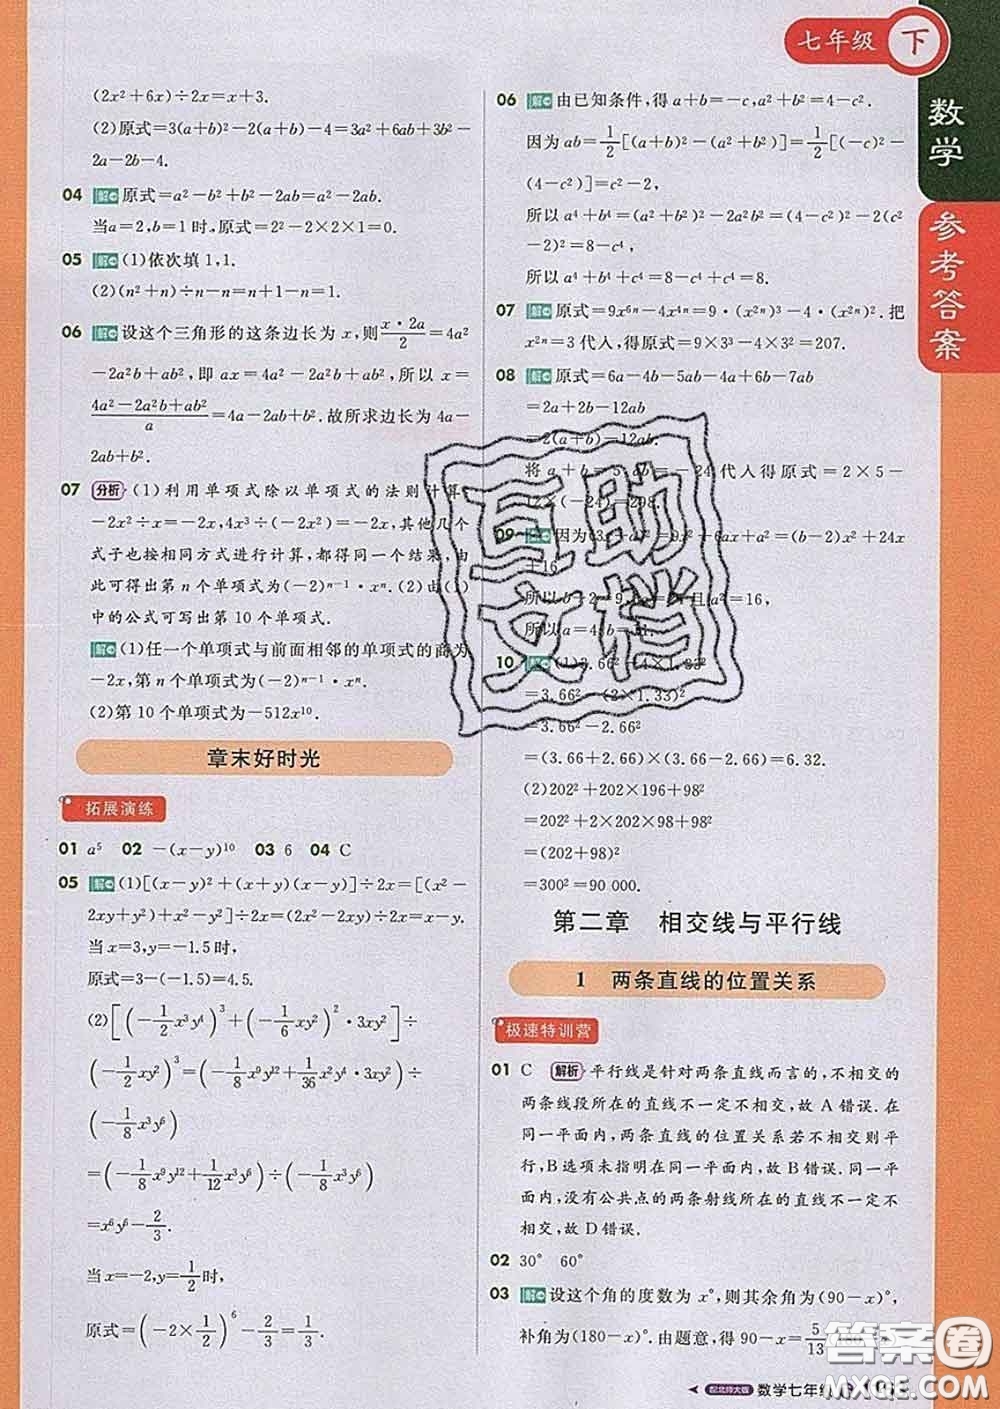 七年级 下
数学
参考答案
(2x²+6x)÷2x=x+3.
(2)原式=3(a+b)²-2(a+b)-4=3a²+6ab+3b²-
2a-2b-4.
04 解 原式=a²-b²+b²-2ab=a²-2ab.
当a=2,b=1时,原式=2²-2×2×1=0.
05 解 (1)依次填1,1.
(2)(n²+n)÷n-n=n+1-n=1.
06 解 设这个三角形的这条边长为x,则 x·2a/2 =4a²
-2a²b+ab²,即ax=4a-2a²b+ab²,所以x=
4a²-2a²b+ab²/a =4a-2ab+b².故所求边长为4a-
2ab+b².
07 分析 (1)利用单项式除以单项式的法则计算
-2x²÷x=-2x,4x³÷(-2x²)=-2x,其他几个
式子也按相同方式进行计算,都得同一个结果,由
此可得出第n个单项式为(-2)ⁿ⁻¹·xⁿ.(2)由(1)
中的公式可写出第10个单项式.
解 (1)任一个单项式与前面相邻的单项式的商为
-2x,第n个单项式为(-2)ⁿ⁻¹·xⁿ.
(2)第10个单项式为-512x¹⁰.
章末好时光
拓展演练
01 a⁵ 02 -(x-y)¹⁰ 03 6 04 C
05 解 (1)[(x-y)²+(x+y)(x-y)]÷2x=[(x²-
2xy+y²)+x²-y²]÷2x=(2x²-2xy)÷2x=x-y.
当x=3,y=-1.5时,
原式=3-(-1.5)=4.5.
(2)[(-1/2 x³y⁴)³+(-1/6 xy²)²·3xy²]÷
(-1/2 xy²)³=(-1/8 x⁹y¹²+1/36 x²y⁴·3xy²)÷
(-1/8 x³y⁶)
=(-1/8 x⁹y¹²+1/12 x³y⁶)÷(-1/8 x³y⁶)
=x⁶y⁶-2/3.
当x=-2,y=1/2时,
原式=(-2×1/2)⁶-2/3=1/3.
06 解 由已知条件,得a+b=-c,a²+b²=4-c².
因为ab=1/2[(a+b)²-(a²+b²)]=1/2[(-c)²-
(4-c²)]=c²-2,
所以a⁴+b⁴=(a²+b²)²-2a²b²=(4-c²)²-2(c²
-2)²=8-c⁴,
所以a⁴+b⁴+c⁴=8-c⁴+c⁴=8.
07 解 原式=9x⁶ⁿ-4x⁴ⁿ=9·(x²ⁿ)³-4·(x²ⁿ)².把
x²ⁿ=3代人,得原式=9×3³-4×3²=207.
08 解 原式=6a-4b-5ab-4a+6b-7ab
=2a+2b-12ab
=2(a+b)-12ab.
将a+b=5,ab=-24代人得原式=2×5-
12×(-24)=298.
09 解 因为(3x+a)²=9x²+6ax+a²=(b-2)x²+24x
+16,
所以b-2=9,6a=24且a²=16,
所以a=4,b=11.
10 解 (1)3.66²-4×1.33²
=3.66²-(2×1.33)²
=3.66²-2.66²
=(3.66+2.66)×(3.66-2.66)=6.32.
(2)202²+202×196+98²
=202²+2×202×98+98²
=(202+98)²
=300²=90 000.
第二章 相交线与平行线
1 两条直线的位置关系
极速特训营
01 C 解析 平行线是针对两条直线而言的,不相交的
两条线段所在的直线不一定不相交,故A错误.在
同一平面内,两条直线的位置关系若不相交则平
行,B选项未指明在同一平面内,故B错误.同一平
面内,没有公共点的两条射线所在的直线不一定不
相交,故D错误.
02 30° 60°
03 解 设这个角的度数为x°,则其余角为(90-x)°,
补角为(180-x)°.由题意,得90-x=5/13
配北师大版 数学七年级
互助
文档
答案圈